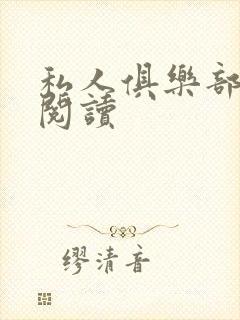 私人俱樂部
閱讀
缪清音